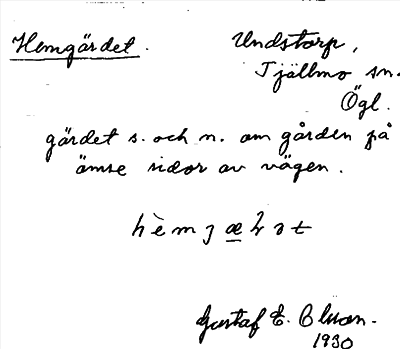 Hemgärdet. Undstorp,
Tjällmo sn.
Ögl.
gärdet s. och n. om gården på
ömse sidor av vägen.
Gustaf E. Olson.
1930